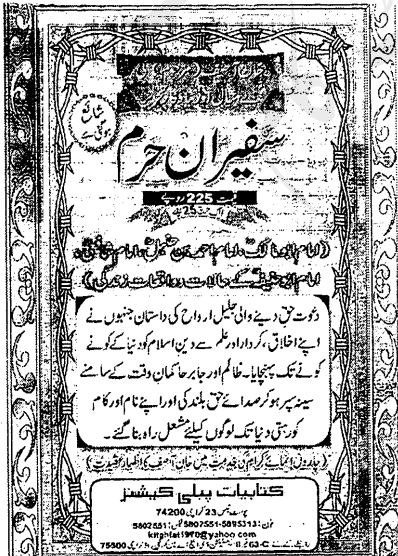 شائع ہو گئی ہے
سفیران حرم
قیمت 225 روپے
25
(امام ابو مالکؒ، امام احمد بن حنبلؒ، امام شافعیؒ،
امام ابو حنیفہؒ کے حالات و واقعات زندگی)
دعوت حق دینے والی جلیل ارواح کی داستان جنہوں نے
اپنے اخلاق، کردار اور علم سے دین اسلام کو دنیا کے کونے
کونے تک پہنچایا۔ ظالم اور جابر حاکمان وقت کے سامنے
سینہ سپر ہو کر صدائے حق بلند کی اور اپنے نام اور کام
کو رہتی دنیا تک لوگوں کیلئے مشعل راہ بنا گئے۔
(چاروں ائمائے کرام کی خدمت میں خان آصف کا اظہار عقیدت)
کتابیات پبلی کیشنز
پوسٹ بکس 23 کراچی 74200
فون: 5802551-5895313 فیکس: 5802551
kitabiat1970@yahoo.com
63-C کراچی 75500